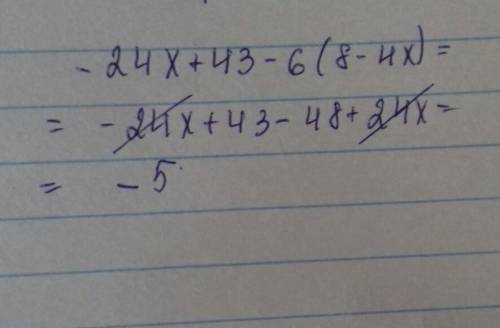 - 24x + 43 - 6(8 - 4x) =
= - 24x + 43 - 48 + 24x =
= - 5